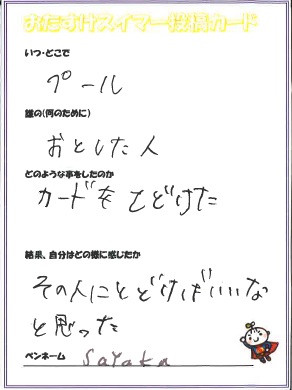 おたすけスイマー投稿カード
いつ・どこで
プール
誰の(何のために)
おとした人
どのような事をしたのか
カードをとどけた
結果、自分はどの様に感じたか
その人にとどけばいいな
と思った
ペンネーム sayaka